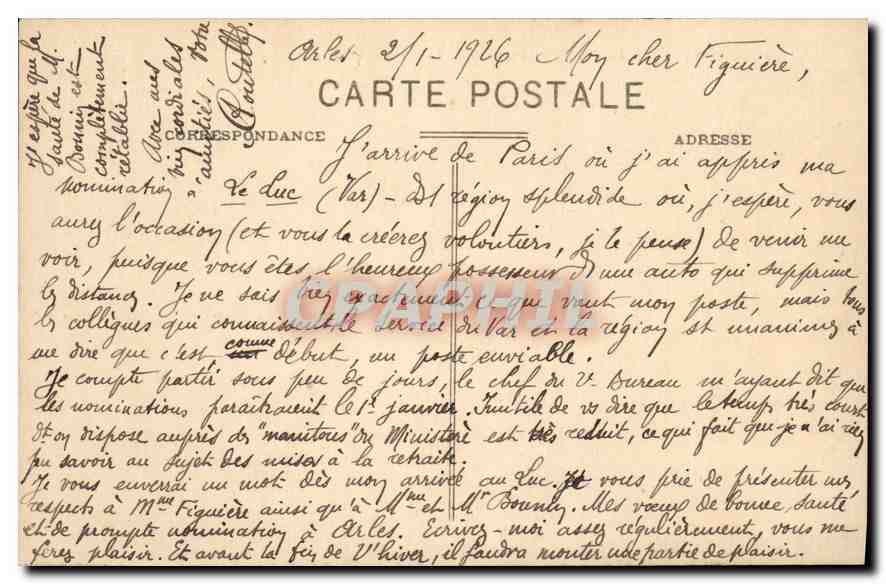 Arles 2/1-1926 Mon cher Figuière,
CARTE POSTALE
CORRESPONDANCE
ADRESSE
J'arrive de Paris où j'ai appris ma
nomination Le Luc (Var) - région splendide où, j'espère, vous
aurez l'occasion (et vous la créerez volontiers, je le pense) de venir me
voir, puisque vous êtes l'heureux possesseur d'une auto qui supprime
les distances. Je ne sais très exactement ce que vaut mon poste, mais tous
les collègues qui connaissent le service du Var et la région st unanimes à
me dire que c'est comme début, un poste enviable.
Je compte partir sous peu de jours, le chef du Vᵉ Bureau m'ayant dit que
les nominations paraîtraient le 1ᵉʳ janvier. Inutile de vs dire que le temps très court
dt on dispose auprès des "manitous" du Ministère est très réduit, ce qui fait que je n'ai rien
pu savoir au sujet des mises à la retraite.
Je vous enverrai un mot dès mon arrivée au Luc. Je vous prie de présenter mes
respects à Mme Figuière ainsi qu'à Mme et Mr. Mes vœux de bonne santé
et de prompte nomination à Arles. Ecrivez-moi assez régulièrement, vous me
ferez plaisir. Et avant la fin de l'hiver, il faudra monter une partie de plaisir.
J'espère que la
santé de M.
est
complètement
rétablie.
Avec mes
plus cordiales
amitiés, Votre
CPAPHIL